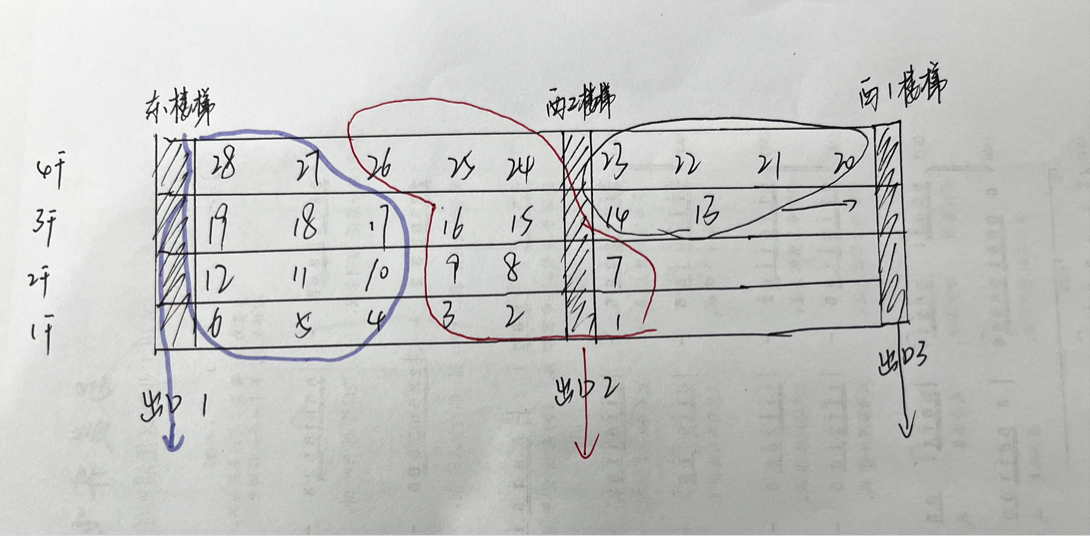 东楼梯 西2楼梯 西1楼梯
4F 28 27 26 25 24 23 22 21 20
3F 19 18 17 16 15 14 13
2F 12 11 10 9 8 7
1F 6 5 4 3 2 1
出口1 出口2 出口3